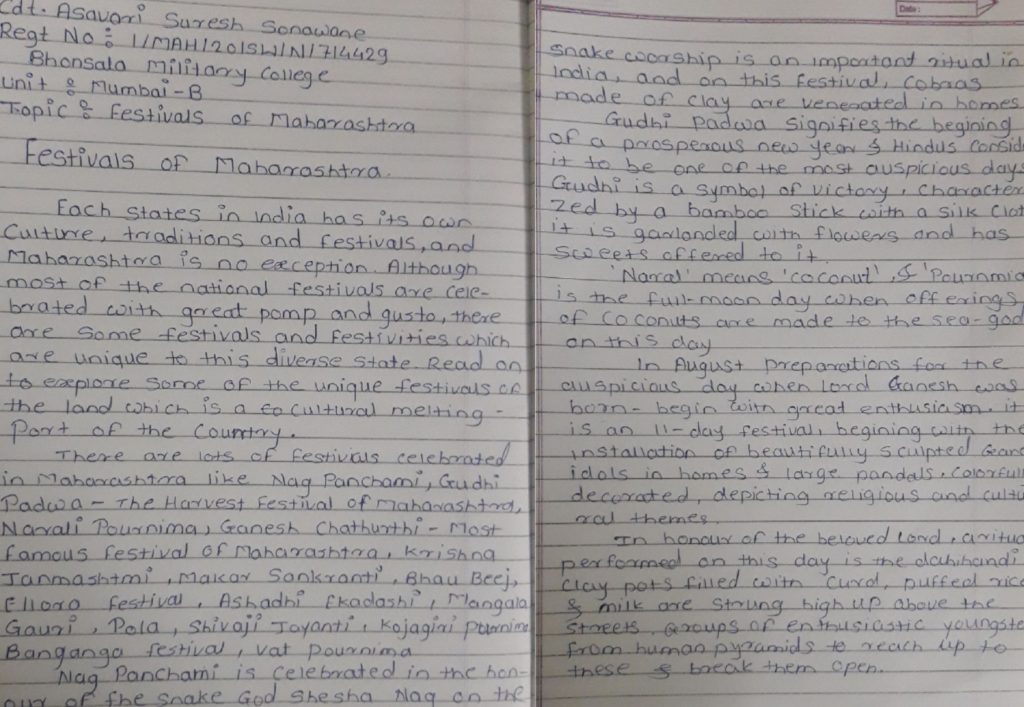 Cdt. Asavari Suresh Sonawane
Regt No : 1/MAH/20/SW/N/714429
Bhonsala Military College
Unit : Mumbai-B
Topic : Festivals of Maharashtra
Festivals of Maharashtra.
Each states in India has its own
Culture, traditions and festivals, and
Maharashtra is no exception. Although
most of the national festivals are cele-
brated with great pomp and gusto, there
are some festivals and festivities which
are unique to this diverse state. Read on
to explore some of the unique festivals of
the land which is a co cultural melting-
Port of the Country.
There are lots of festivials celebrated
in Maharashtra like Nag Panchami, Gudhi
Padwa - The Harvest Festival of Maharashtra,
Narrali Pournima, Ganesh Chathurthi - Most
famous festival of Maharashtra, Krishna
Janmashtmi, Makar Sankranti, Bhau Beej,
Elloro festival, Ashadhi Ekadashi, Mangala
Gauri, Pola, Shivaji Jayanti, Kojagiri Purnima
Banganga festival, Vat Pournima
Nag Panchami is celebrated in the hon-
our of the snake God Shesha Nag on the
Date:
snake worship is an important ritual in
India, and on this festival, Cobras
made of clay are venerated in homes
Gudhi Padwa signifies the begining
of a prosperous new year & Hindus Consid
it to be one of the most auspicious days
Gudhi is a symbol of victory, Character
zed by a bamboo stick with a silk Clot
it is garlanded with flowers and has
sweets offered to it.
'Naral' means 'coconut', & 'Pournmia
is the full-moon day when offerings
of Coconuts are made to the sea-god
on this day
In August preparations for the
auspicious day when Lord Ganesh was
born - begin with great enthusiasm. it
is an 11-day festival, begining with the
installation of beautifully sculpted Gane
idols in homes & large pandals, Colorfull
decorated, depicting religious and cultu
ral themes.
In honour of the beloved Lord, a ritua
performed on this day is the dahihandi
Clay pots filled with Curd, puffed rice
& milk are strung high up above the
streets. Groups of enthusiastic youngste
from human pyramids to reach up to
these & break them open.